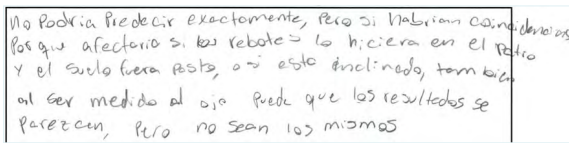 no Podria Predecir exactamente, Pero si habrian coincidencias
Porque afectaria si los rebotes lo hiciera en el patio
Y el suelo fuera pasto, o si esta inclinado, tambien
al ser medido al ojo puede que los resultados se
parezcan, Pero no sean los mismos